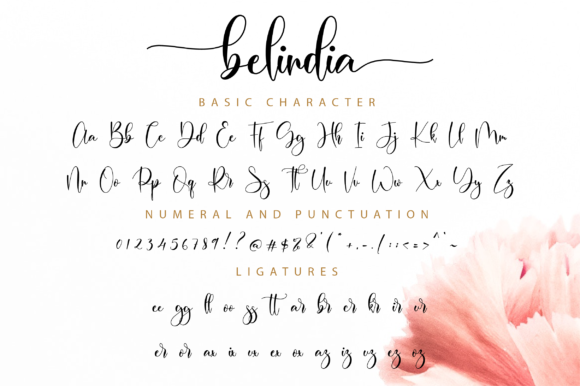 belindia
BASIC CHARACTER
Aa Bb Cc Dd Ee Ff Gg Hh Ii Jj Kk Ll Mm
Nn Oo Pp Qq Rr Ss Tt Uu Vv Ww Xx Yy Zz
NUMERAL AND PUNCTUATION
0123456789!?@#$%&'("+,-./:;<=>^~
LIGATURES
ee gg ll oo ss tt ar br er kr ir ur
er or ax ix ux ex ox az iz uz ez oz